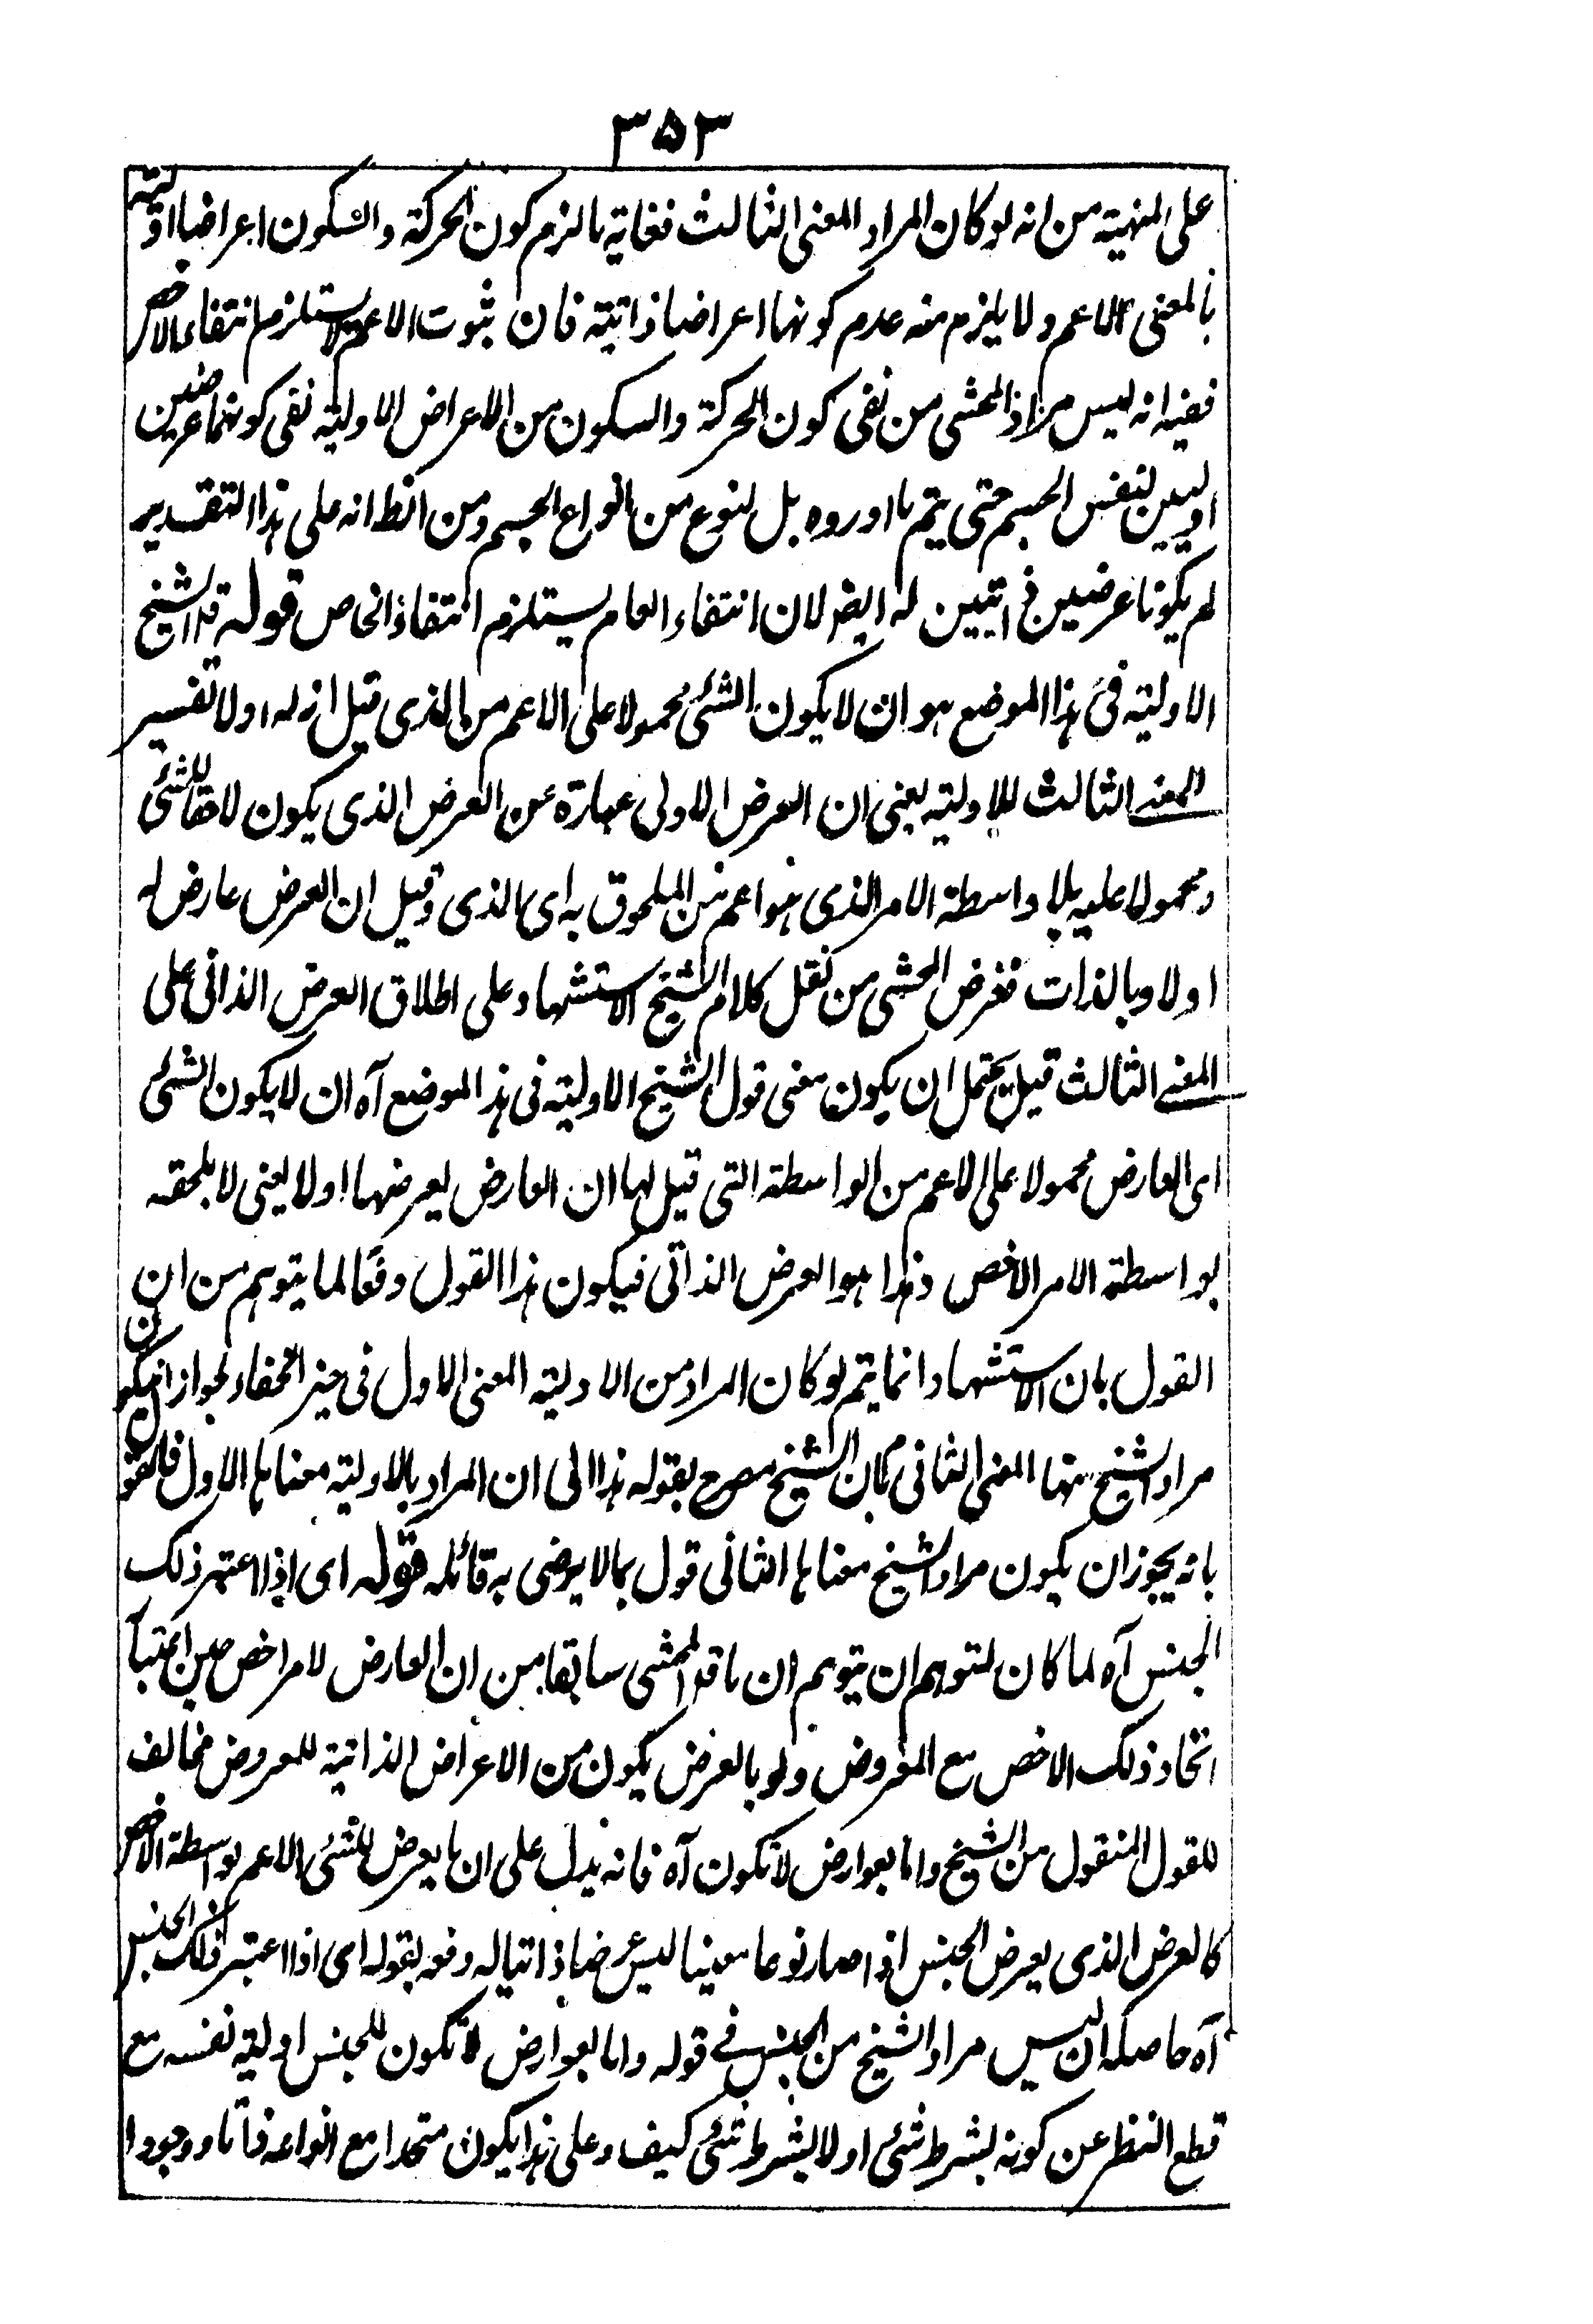 ٣٥٣
على المنهية من انه لو كان المراد المعنى الثالث فغاية ما لزم كون الحركة والسكون اعراضا اولية
بالمعنى الاعم ولا يلزم منه عدم كونها اعراضا ذاتية فان ثبوت الاعم لا يستلزم انتفاء الاخص
ففيه انه ليس مراد المحشى من نفى كون الحركة والسكون من الاعراض الاولية نفى كونهما عرضين
اوليين لنفس الجسم حتى يتم ما اورده بل لنوع من انواع الجسم ومن الظ انه على هذا التقدير
لم يكونا عرضين ذاتيين له ايضا لان انتفاء العام يستلزم انتفاء الخاص قوله قال الشيخ
الاولية فى هذا الموضع هو ان لا يكون الشئ محمولا على الاعم من الذى قيل انه له اولا تفسير
المعنى الثالث للاولية يعنى ان العرض الاولى عبارة عن العرض الذى يكون لاحقا للشئ
ومحمولا عليه بلا واسطة الامر الذى هو اعم من الملحوق به اى الذى وقيل ان العرض عارض له
اولا وبالذات فغرض المحشى من نقل كلام الشيخ الاستشهاد على اطلاق العرض الذاتى على
المعنى الثالث قيل يحتمل ان يكون معنى قول الشيخ الاولية فى هذا الموضع آه ان لا يكون الشئ
اى العارض محمولا على الاعم من الواسطة التى قيل لها ان العارض يعرضها اولا يعنى لا يلحقه
بواسطة الامر الاخص وهذا هو العرض الذاتى فيكون هذا القول دفعا لما يتوهم من ان
القول بان الاستشهاد انما يتم لو كان المراد من الاولية المعنى الاول فى حيز الخفاء لجواز ان يكون
مراد الشيخ منها المعنى الثانى بان الشيخ مصرح بقوله هذا الى ان المراد بالاولية معناها الاول فالقول
بانه يجوز ان يكون مراد الشيخ معناها الثانى قول بما لا يرضى به قائله قوله اى اذا اعتبر ذلك
الجنس آه لما كان لمتوهم ان يتوهم ان ما قال المحشى سابقا من ان العارض لامر اخص حين اعتبار
اتحاد ذلك الاخص مع المعروض ولو بالعرض يكون من الاعراض الذاتية للمعروض مخالف
للقول المنقول من الشيخ واما بعوارض لا تكون آه فانه يدل على ان ما يعرض للشئ الاعم بواسطة الاخص
كالعرض الذى يعرض الجنس اذا صار نوعا معينا ليس عرضا ذاتيا له دفعه بقوله اى اذا اعتبر ذلك الجنس
آه حاصله ان ليس مراد الشيخ من الجنس فى قوله واما بعوارض لا تكون للجنس اولية نفسه مع
قطع النظر عن كونه بشرط شئ او لا بشرط شئ كيف وعلى هذا يكون متحدا مع انواعه ذاتا ووجودا